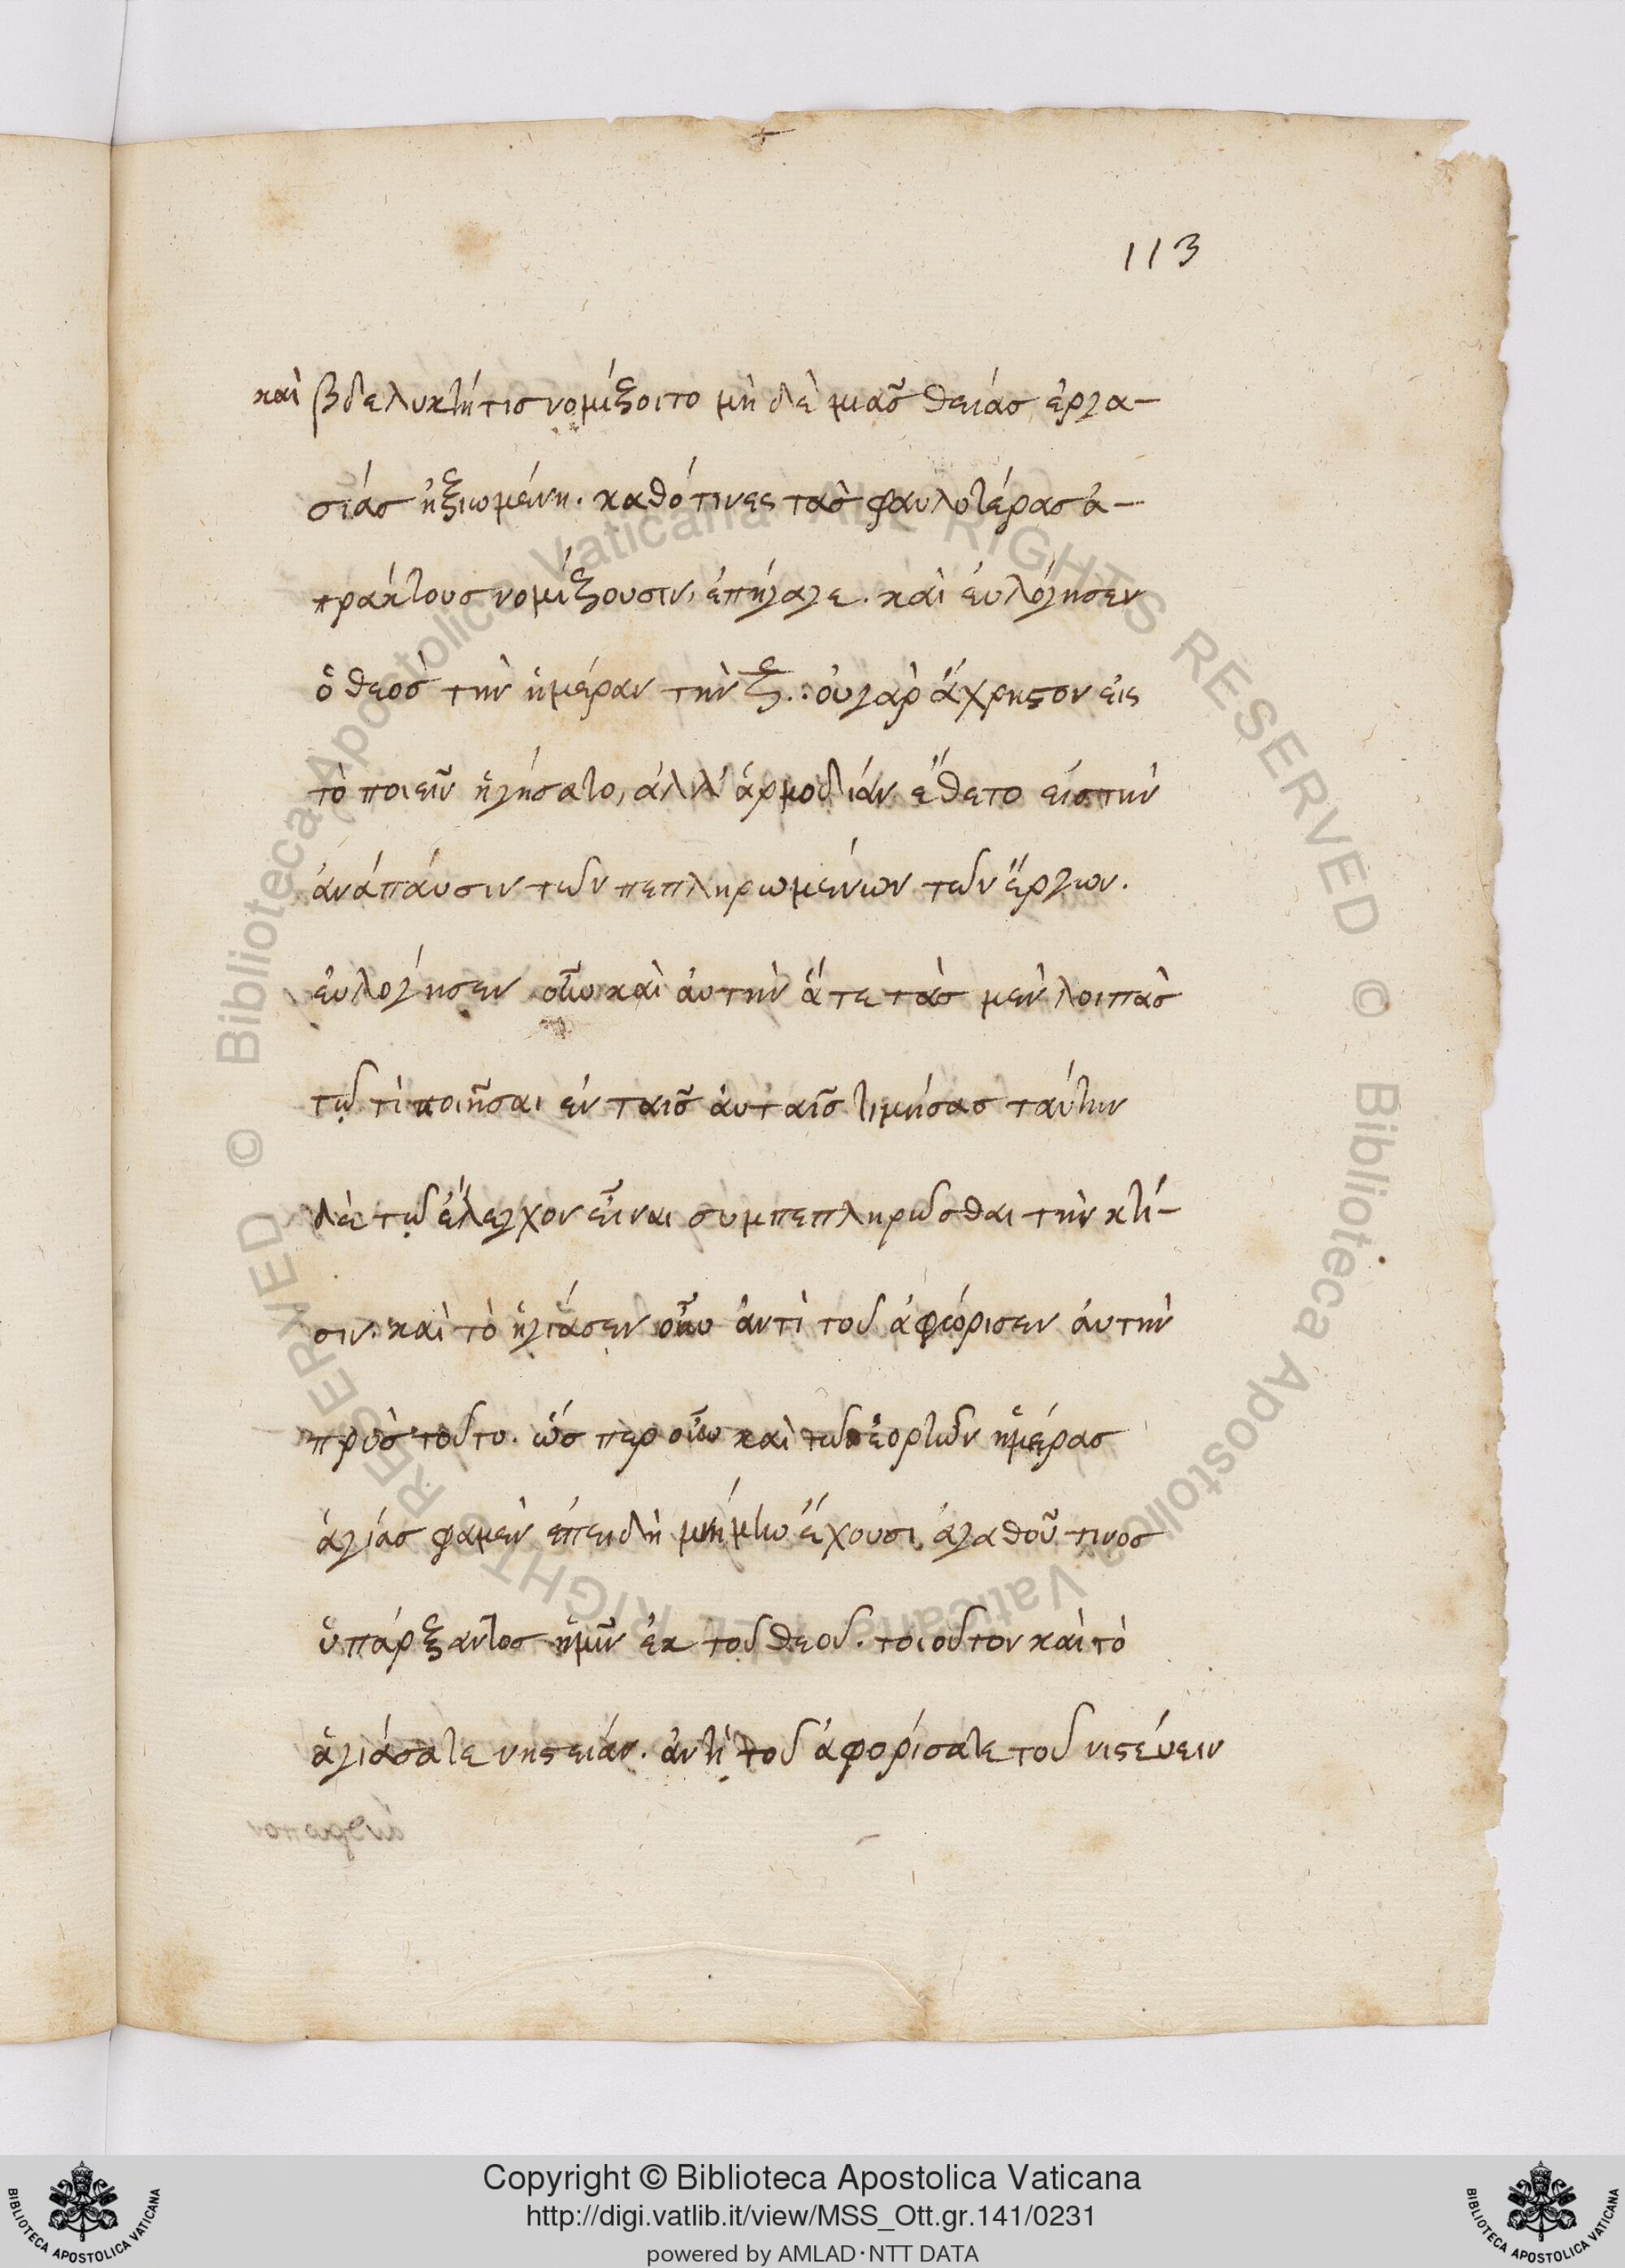 113
καὶ βδελυκτή τισ νομίζοιτο μὴ δὲ μιᾶσ θείάσ ἐργα-
σίάσ ἠξιωμένη. καθό τινες τὰσ φαυλοτέρασ ἀ-
πράκτουσ νομίζουσιν, ἐπήγαγε. καὶ ἐυλόγησεν
ὁ θεοσ τὴν ἡμέραν τὴν ζ. ὀυγὰρ ἄχρηϛον ἐις
τὸ ποιεῖν ἡγήσατο, ἀλλ' ἁρμοδίὰν ἔθετο εἰστὴν
ἀνάπάυσιν τῶν πεπληρωμένων τῶν ἔργων.
ἐυλόγησεν οὖν καὶ ἀυτὴν ἅτε τὰσ μὲν λοιπὰσ
τῷ τὶ ποιῆσαι ἐν ταῖσ ἀυταῖσ τιμήσασ ταύτην
δὲ τῷ ἔλεγχον εἶναι συμπεπληρῶσθαι τὴν κτί-
σιν. καὶ τὸ ἡγίάσεν οὖν ἀντὶ τοῦ ἀφώρισεν ἀυτὴν
πρὸσ τοῦτο. ὥσ περ οὖν καὶ τῶν ἑορτῶν ἡμέρασ
ἁγίάσ φαμὲν ἐπειδὴ μνήμην ἔχουσι ἀγαθοῦ τινοσ
ὑπάρξαντοσ ἡμῖν ἐκ τοῦ θεοῦ. τοιοῦτον καὶ τὸ
ἁγιάσατε νηϛειάν. ἀντὶ τοῦ ἀφορίσατε τοῦ νιϛέυειν
Copyright © Biblioteca Apostolica Vaticana
http://digi.vatlib.it/view/MSS_Ott.gr.141/0231
powered by AMLAD·NTT DATA
BIBLIOTECA APOSTOLICA VATICANA
BIBLIOTECA APOSTOLICA VATICANA
© Biblioteca Apostolica Vaticana ALL RIGHTS RESERVED © Biblioteca Apostolica Vaticana ALL RIGHTS RESERVED